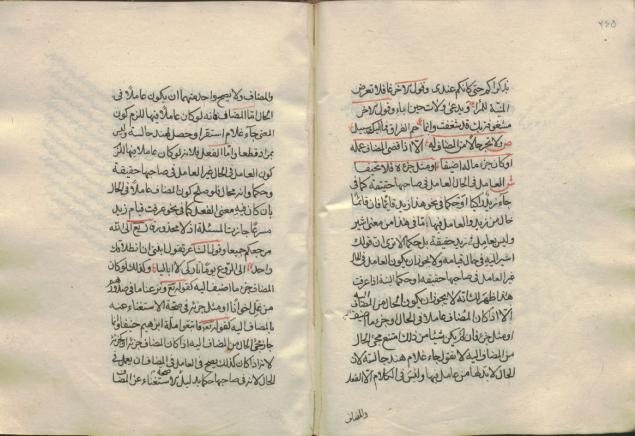 ٢٦٥
بذكراكم حتى كأنكم عندي وقول الآخر غافلا تعرض
المنية للمرء ويدعى ولات حين إباء وقول الآخر
مشغوفة بك قد شغفت وإنما حم الفراق فما إليك سبيل
ص ولا تجز حالا من المضاف له إلا إذا اقتضى المضاف عمله
أو كان جزء ما له أضيفا أو مثل جزئه فلا تحيفا
ش العامل في الحال العامل في صاحبها حقيقة كما في
جاء زيد راكبا أو حكما في نحو هذا زيد قائما فإن قائما
حال من زيد والعامل فيها ما في هذا من معنى أشير
وليس بعامل في زيد حقيقة بل حكما ألا ترى أن قولك
أشير إليه في حال قيامه ولا يجوز أن يكون العامل في الحال
غير العامل في صاحبها حقيقة أو حكما البتة إذا عرفت
هذا أنه لا يجوز أن يكون الحال من المضاف إليه
إلا إذا كان المضاف عاملا في الحال أو جزء ما أضيف إليه
أو مثل جزئه فإن لم يكن شيئا من ذلك امتنع مجيء الحال
من المضاف إليه لا تقول جاء غلام هند جالسة لأن
الحال لا بد لها من عامل فيها وليس في الكلام إلا الفعل
والمضاف
والمضاف ولا يصح واحد منهما أن يكون عاملا في
الحال أما المضاف فلأنه لو كان عاملا فيها للزم كون
المعنى جاء غلام استقر وحصل لهند جالسة وليس
بمراد قطعا وأما الفعل فلأنه لو كان عاملا فيها للزم
كون العامل في الحال غير العامل في صاحبها حقيقة
وحكما وأنه محال فلو صلح كون المضاف عاملا في الحال
بأن كان فيه معنى الفعل كما في نحو عرفت قيام زيد
مسرعا جازت المسئلة إذ لا محذور قال تعالى إلى الله
مرجعكم جميعا وقول الشاعر تقول ابنتي إن انطلاقك
واحدا إلى الروع يوما تاركي لا أباليا وكذلك لو كان
المضاف جزء ما أضيف إليه كقوله تعالى ونزعنا ما في صدورهم
من غل إخوانا أو مثل جزئه في صحة الاستغناء عنه
بالمضاف إليه كقوله تعالى فاتبعوا ملة إبراهيم حنيفا وإنما
جاز مجيء الحال من المضاف إليه إذا كان المضاف جزءه أو كجزئه
لأنه إذا كان كذلك يصح في العامل في المضاف أن يعمل في
الحال لأنه في صاحبها حكما بدليل صحة الاستغناء عن المضاف